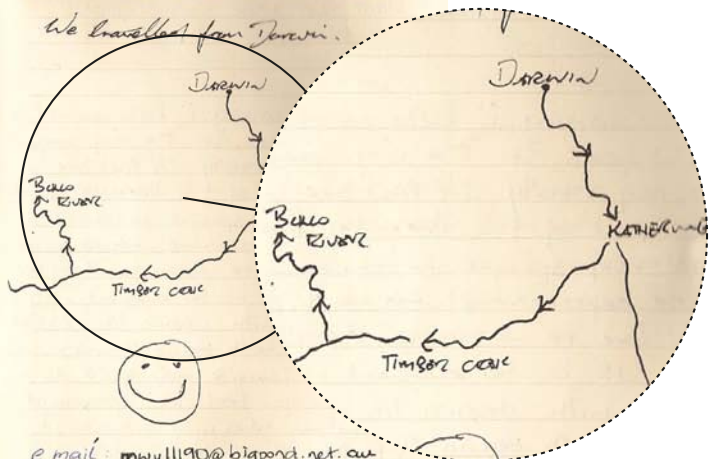 We travelled from Darwin.
DARWIN
BULLO
RIVER
TIMBER CREEK
DARWIN
BULLO
RIVER
KATHERINE
TIMBER CREEK
e mail: mwull190@bigpond.net.au